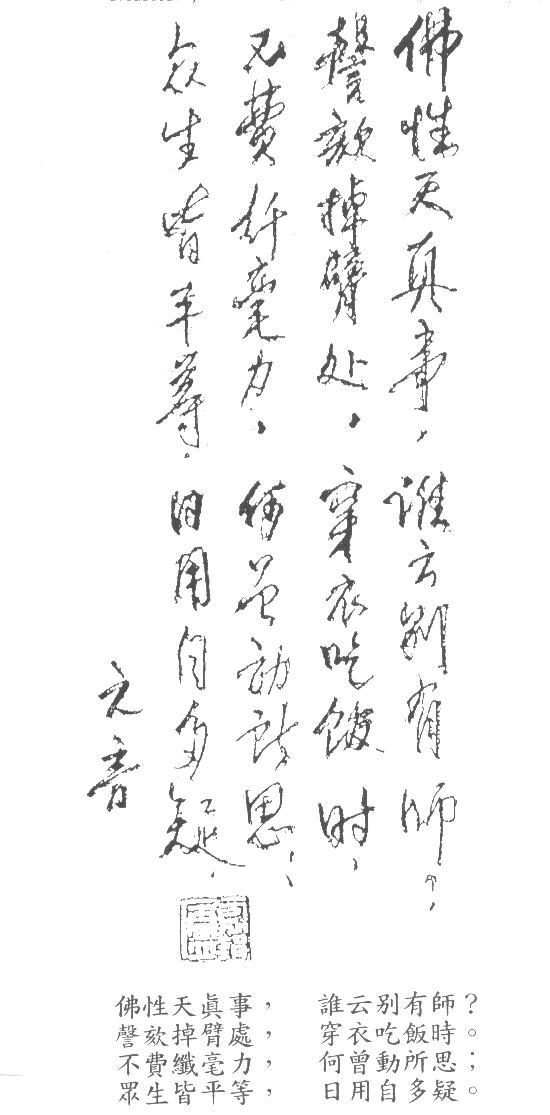 佛性天真事，谁云别有师。
謦欬掉臂处，穿衣吃饭时，
不費纤毫力，何曾動所思；
众生皆平等，日用自多疑．
元音
佛性天眞事，誰云别有師？
謦欬掉臂處，穿衣吃飯時。
不費纖毫力，何曾動所思；
眾生皆平等，日用自多疑。